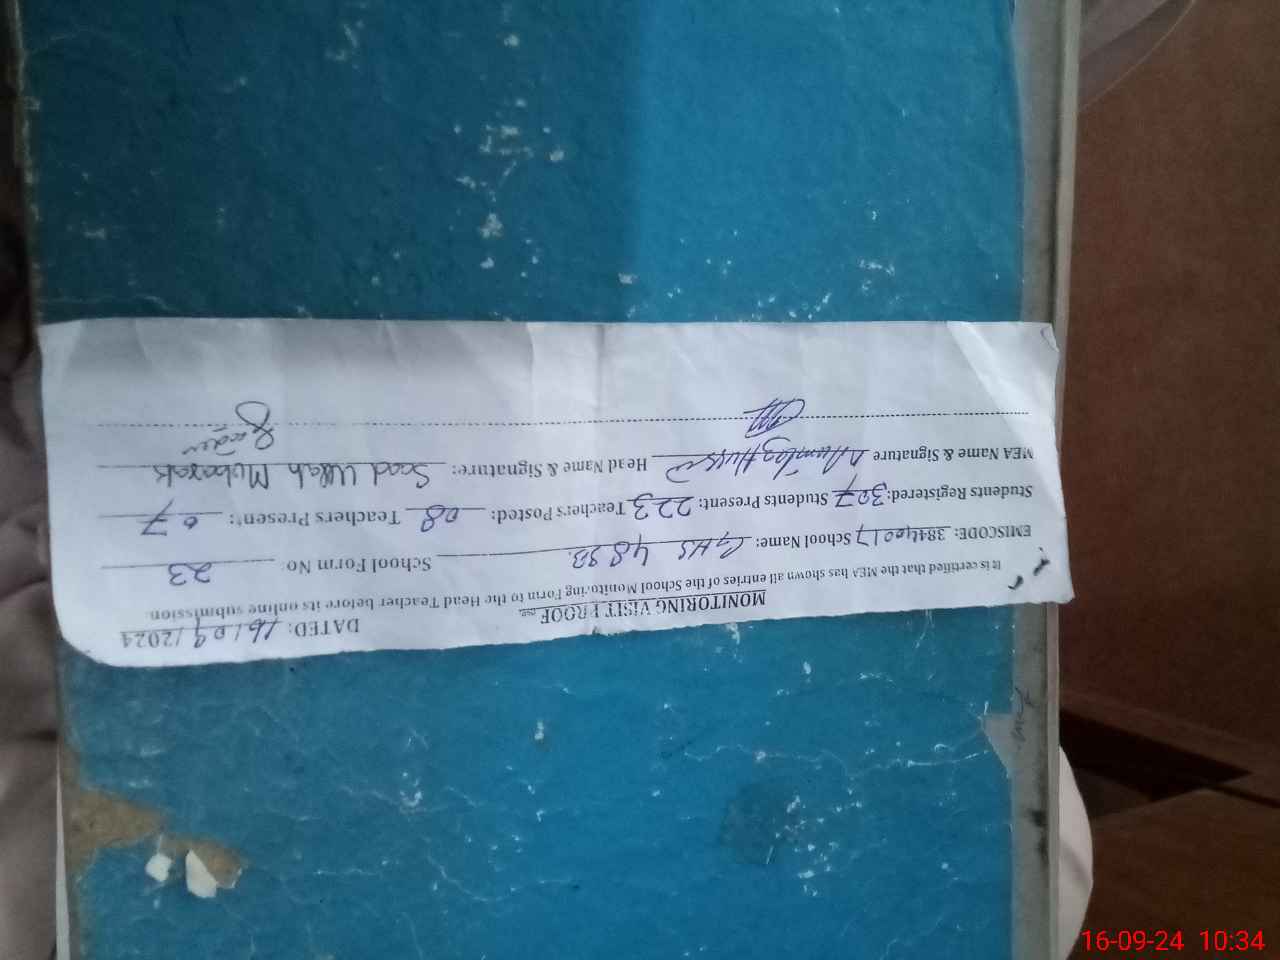 MONITORING VISIT PROOF
DATED: 16/09/2024
It is certified that the MEA has shown all entries of the School Monitoring Form to the Head Teacher before its online submission
EMISCODE: 38440017 School Name: GHS 48 SB. School Form No: 23
Students Registered: 307 Students Present: 223 Teachers Posted: 08 Teachers Present: 07
MEA Name & Signature Head Name & Signature: Saad Ullah Mubarak
16-09-24 10:34